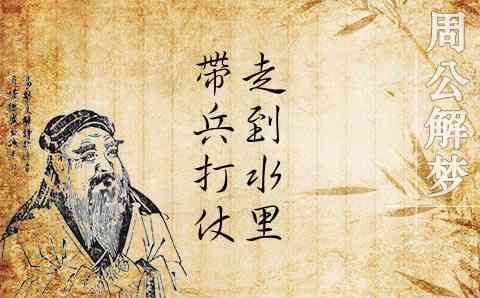 周公解梦
走到水里
帶兵打仗